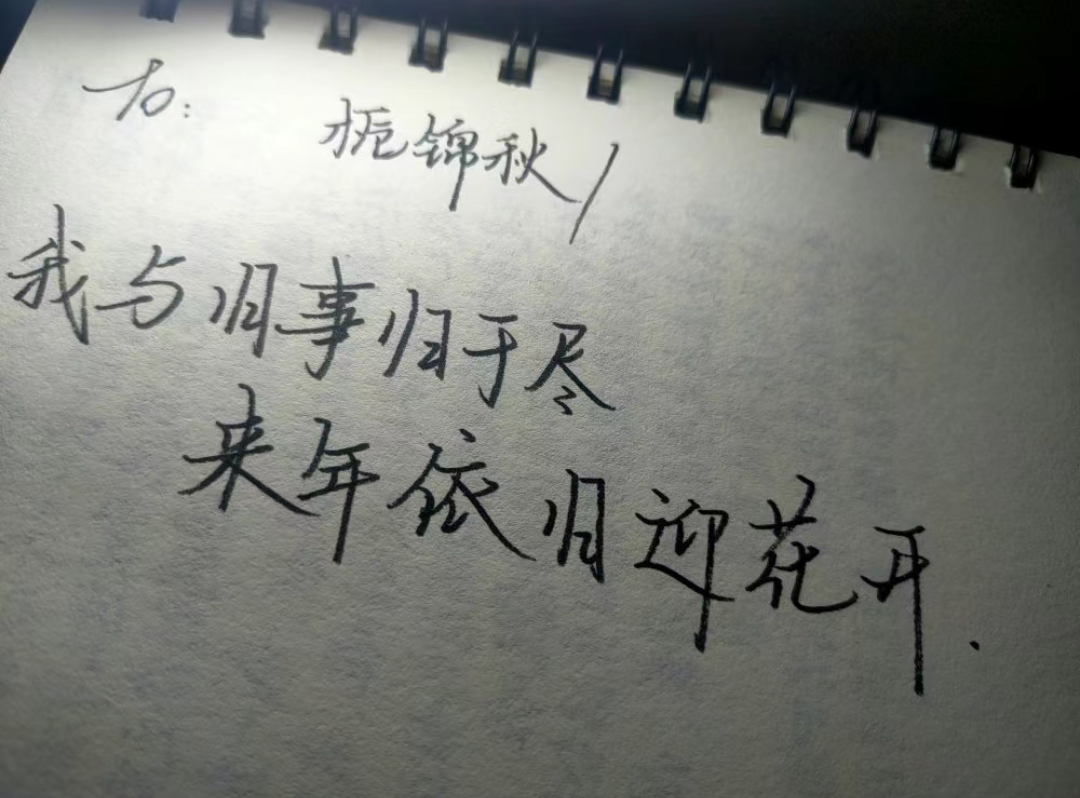 to: 栀锦秋/
我与旧事归于尽
来年依旧迎花开.